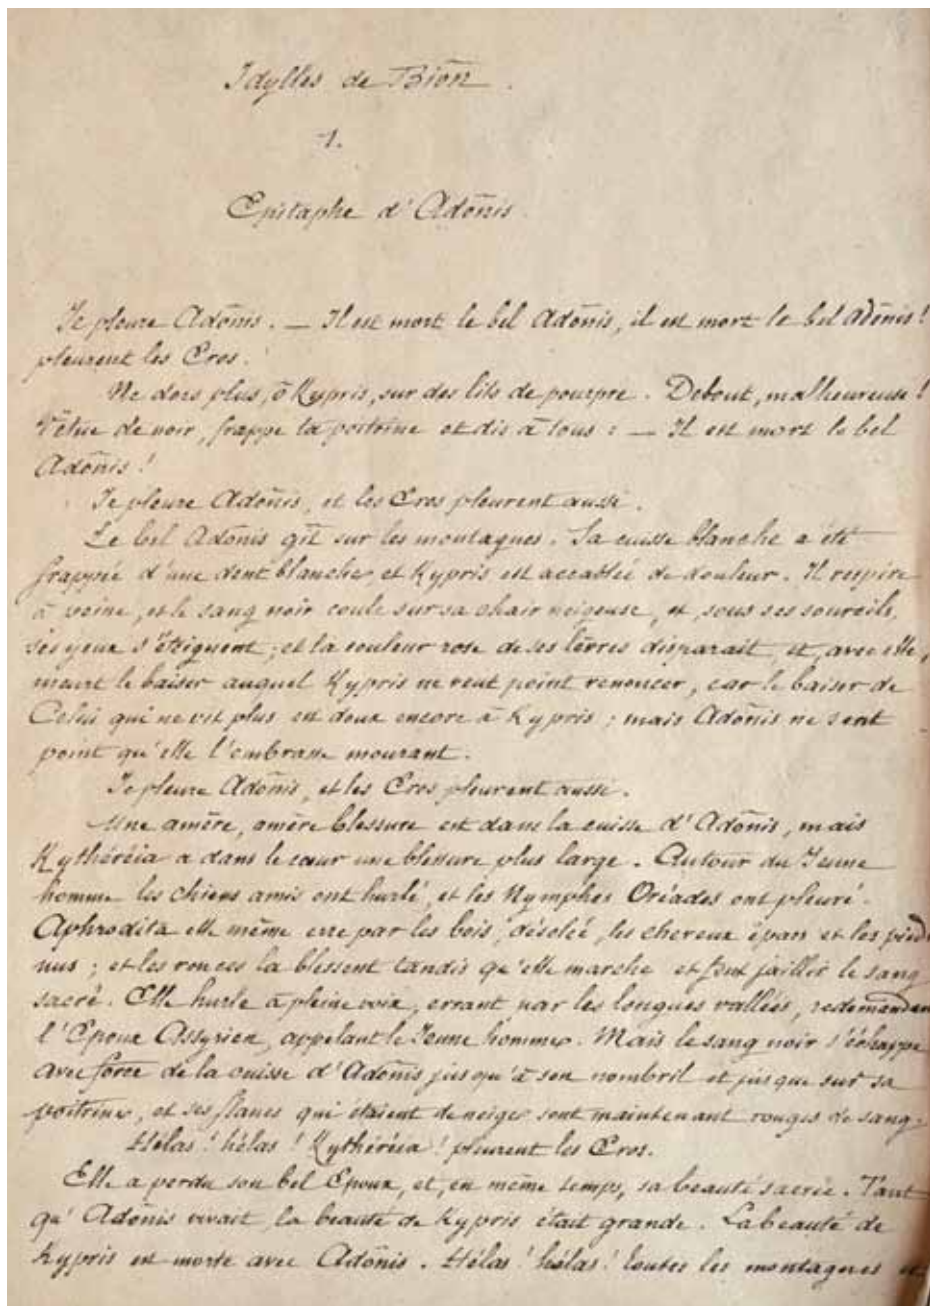 Idylles de Biôn.
1.
Epitaphe d'Adônis.
Je pleure Adônis. — Il est mort le bel Adônis, il est mort le bel Adônis!
pleurent les Eros.
Ne dors plus, ô Kypris, sur des lits de pourpre. Debout, malheureuse!
Vêtue de noir, frappe ta poitrine et dis à tous : — Il est mort le bel
Adônis!
Je pleure Adônis, et les Eros pleurent aussi.
Le bel Adônis gît sur les montagnes. Sa cuisse blanche a été
frappée d'une dent blanche, et Kypris est accablée de douleur. Il respire
à peine, et le sang noir coule sur sa chair neigeuse, et, sous ses sourcils,
ses yeux s'éteignent; et la couleur rose de ses lèvres disparait et, avec elle,
meurt le baiser auquel Kypris ne veut point renoncer, car le baiser de
Celui qui ne vit plus est doux encore à Kypris; mais Adônis ne sent
point qu'elle l'embrasse mourant.
Je pleure Adônis, et les Eros pleurent aussi.
Une amère, amère blessure est dans la cuisse d'Adônis, mais
Kythéréia a dans le cœur une blessure plus large. Autour du Jeune
homme les chiens amis ont hurlé, et les Nymphes Oréades ont pleuré.
Aphrodita elle même erre par les bois, désolée, les cheveux épars et les pieds
nus; et les ronces la blessent tandis qu'elle marche et font jaillir le sang
sacré. Elle hurle à pleine voix, errant par les longues vallées, redemandan
l'Epoux Assyrien, appelant le Jeune homme. Mais le sang noir s'échappe
avec force de la cuisse d'Adônis jusqu'à son nombril et jusque sur sa
poitrine, et ses flancs qui étaient de neige sont maintenant rouges de sang.
Hélas! hélas! Kythéréia! pleurent les Eros.
Elle a perdu son bel Epoux, et, en même temps, sa beauté sacrée. Tant
qu'Adônis vivait, la beauté de Kypris était grande. La beauté de
Kypris est morte avec Adônis. Hélas! hélas! toutes les montagnes et